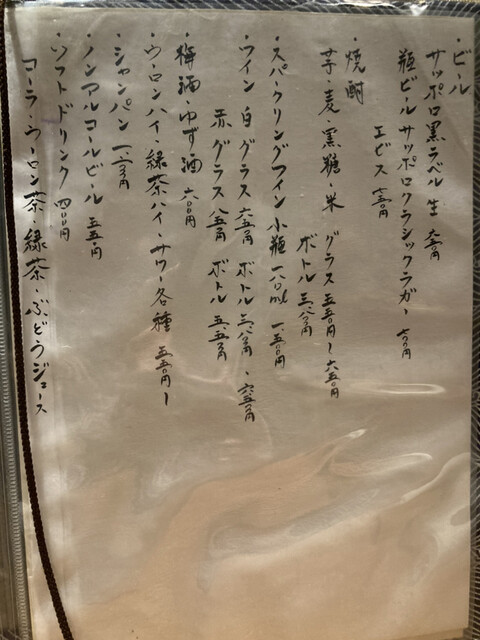 ・ビール
サッポロ黒ラベル 生 六五〇円
瓶ビール サッポロクラシックラガー 七〇〇円
エビス 七五〇円
・焼酎
芋・麦・黒糖・米 グラス 五五〇円〜六五〇円
ボトル 三、八〇〇円
・スパークリングワイン 小瓶 一八〇ml 一、五〇〇円
・ワイン 白 グラス 六五〇円 ボトル 三、八〇〇円・
赤 グラス 八五〇円 ボトル 五、五〇〇円
・梅酒・ゆず酒 六〇〇円
・ウーロンハイ・緑茶ハイ・サワー各種 五五〇円〜
・シャンパン
・ノンアルコールビール 五五〇円
・ソフトドリンク 四〇〇円
コーラ・ウーロン茶・緑茶・ぶどうジュース